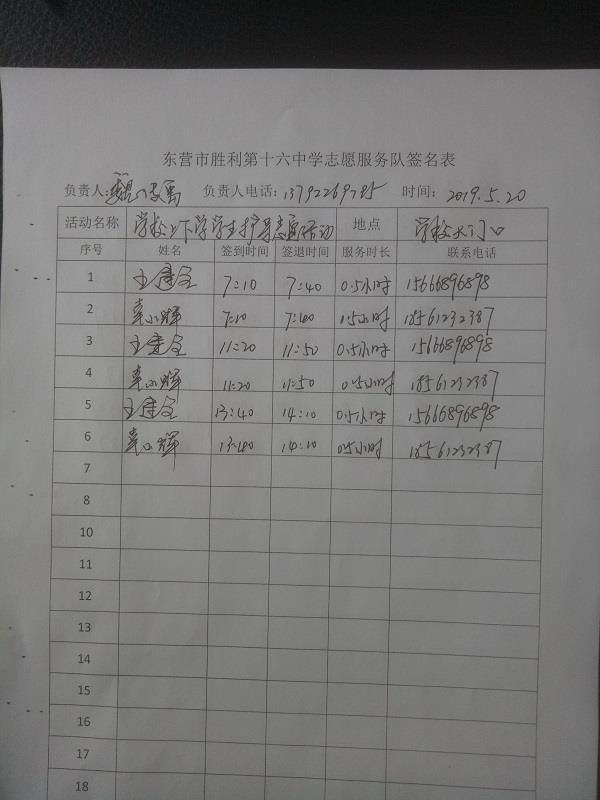 东营市胜利第十六中学志愿服务队签名表
负责人: 负责人电话: 时间: 2019.5.20
活动名称 学校上下学学生护导志愿活动 地点 学校大门口
序号 姓名 签到时间 签退时间 服务时长 联系电话
1 7:10 7:40 0.5小时 15666896898
2 7:10 7:40 0.5小时 18561232387
3 11:20 11:50 0.5小时 15666896898
4 11:20 11:50 0.5小时 18561232387
5 13:40 14:10 0.5小时 15666896898
6 13:40 14:10 0.5小时 18561232387
7
8
10
11
12
13
14
15
16
17
18